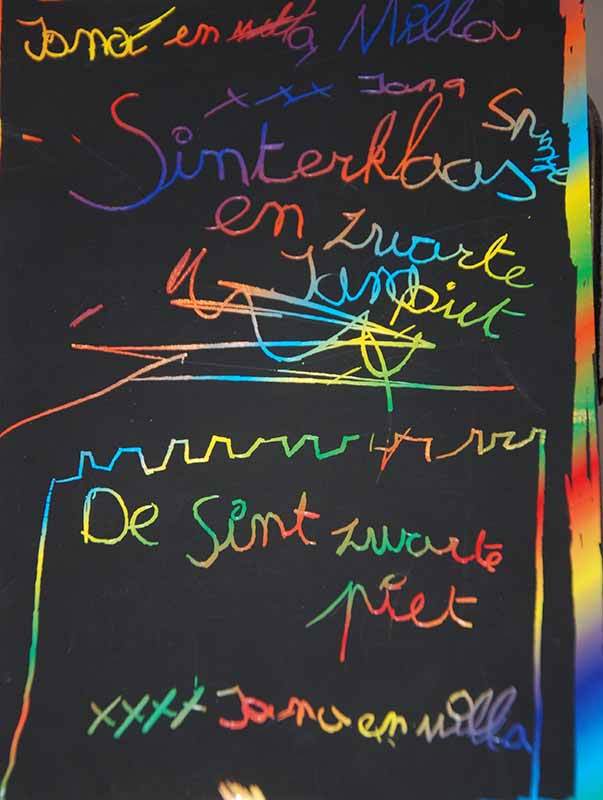 Jana en Milla
xxx Jana
Sinterklaas
en zwarte
piet
De Sint zwarte
piet
xxxx Jana en milla